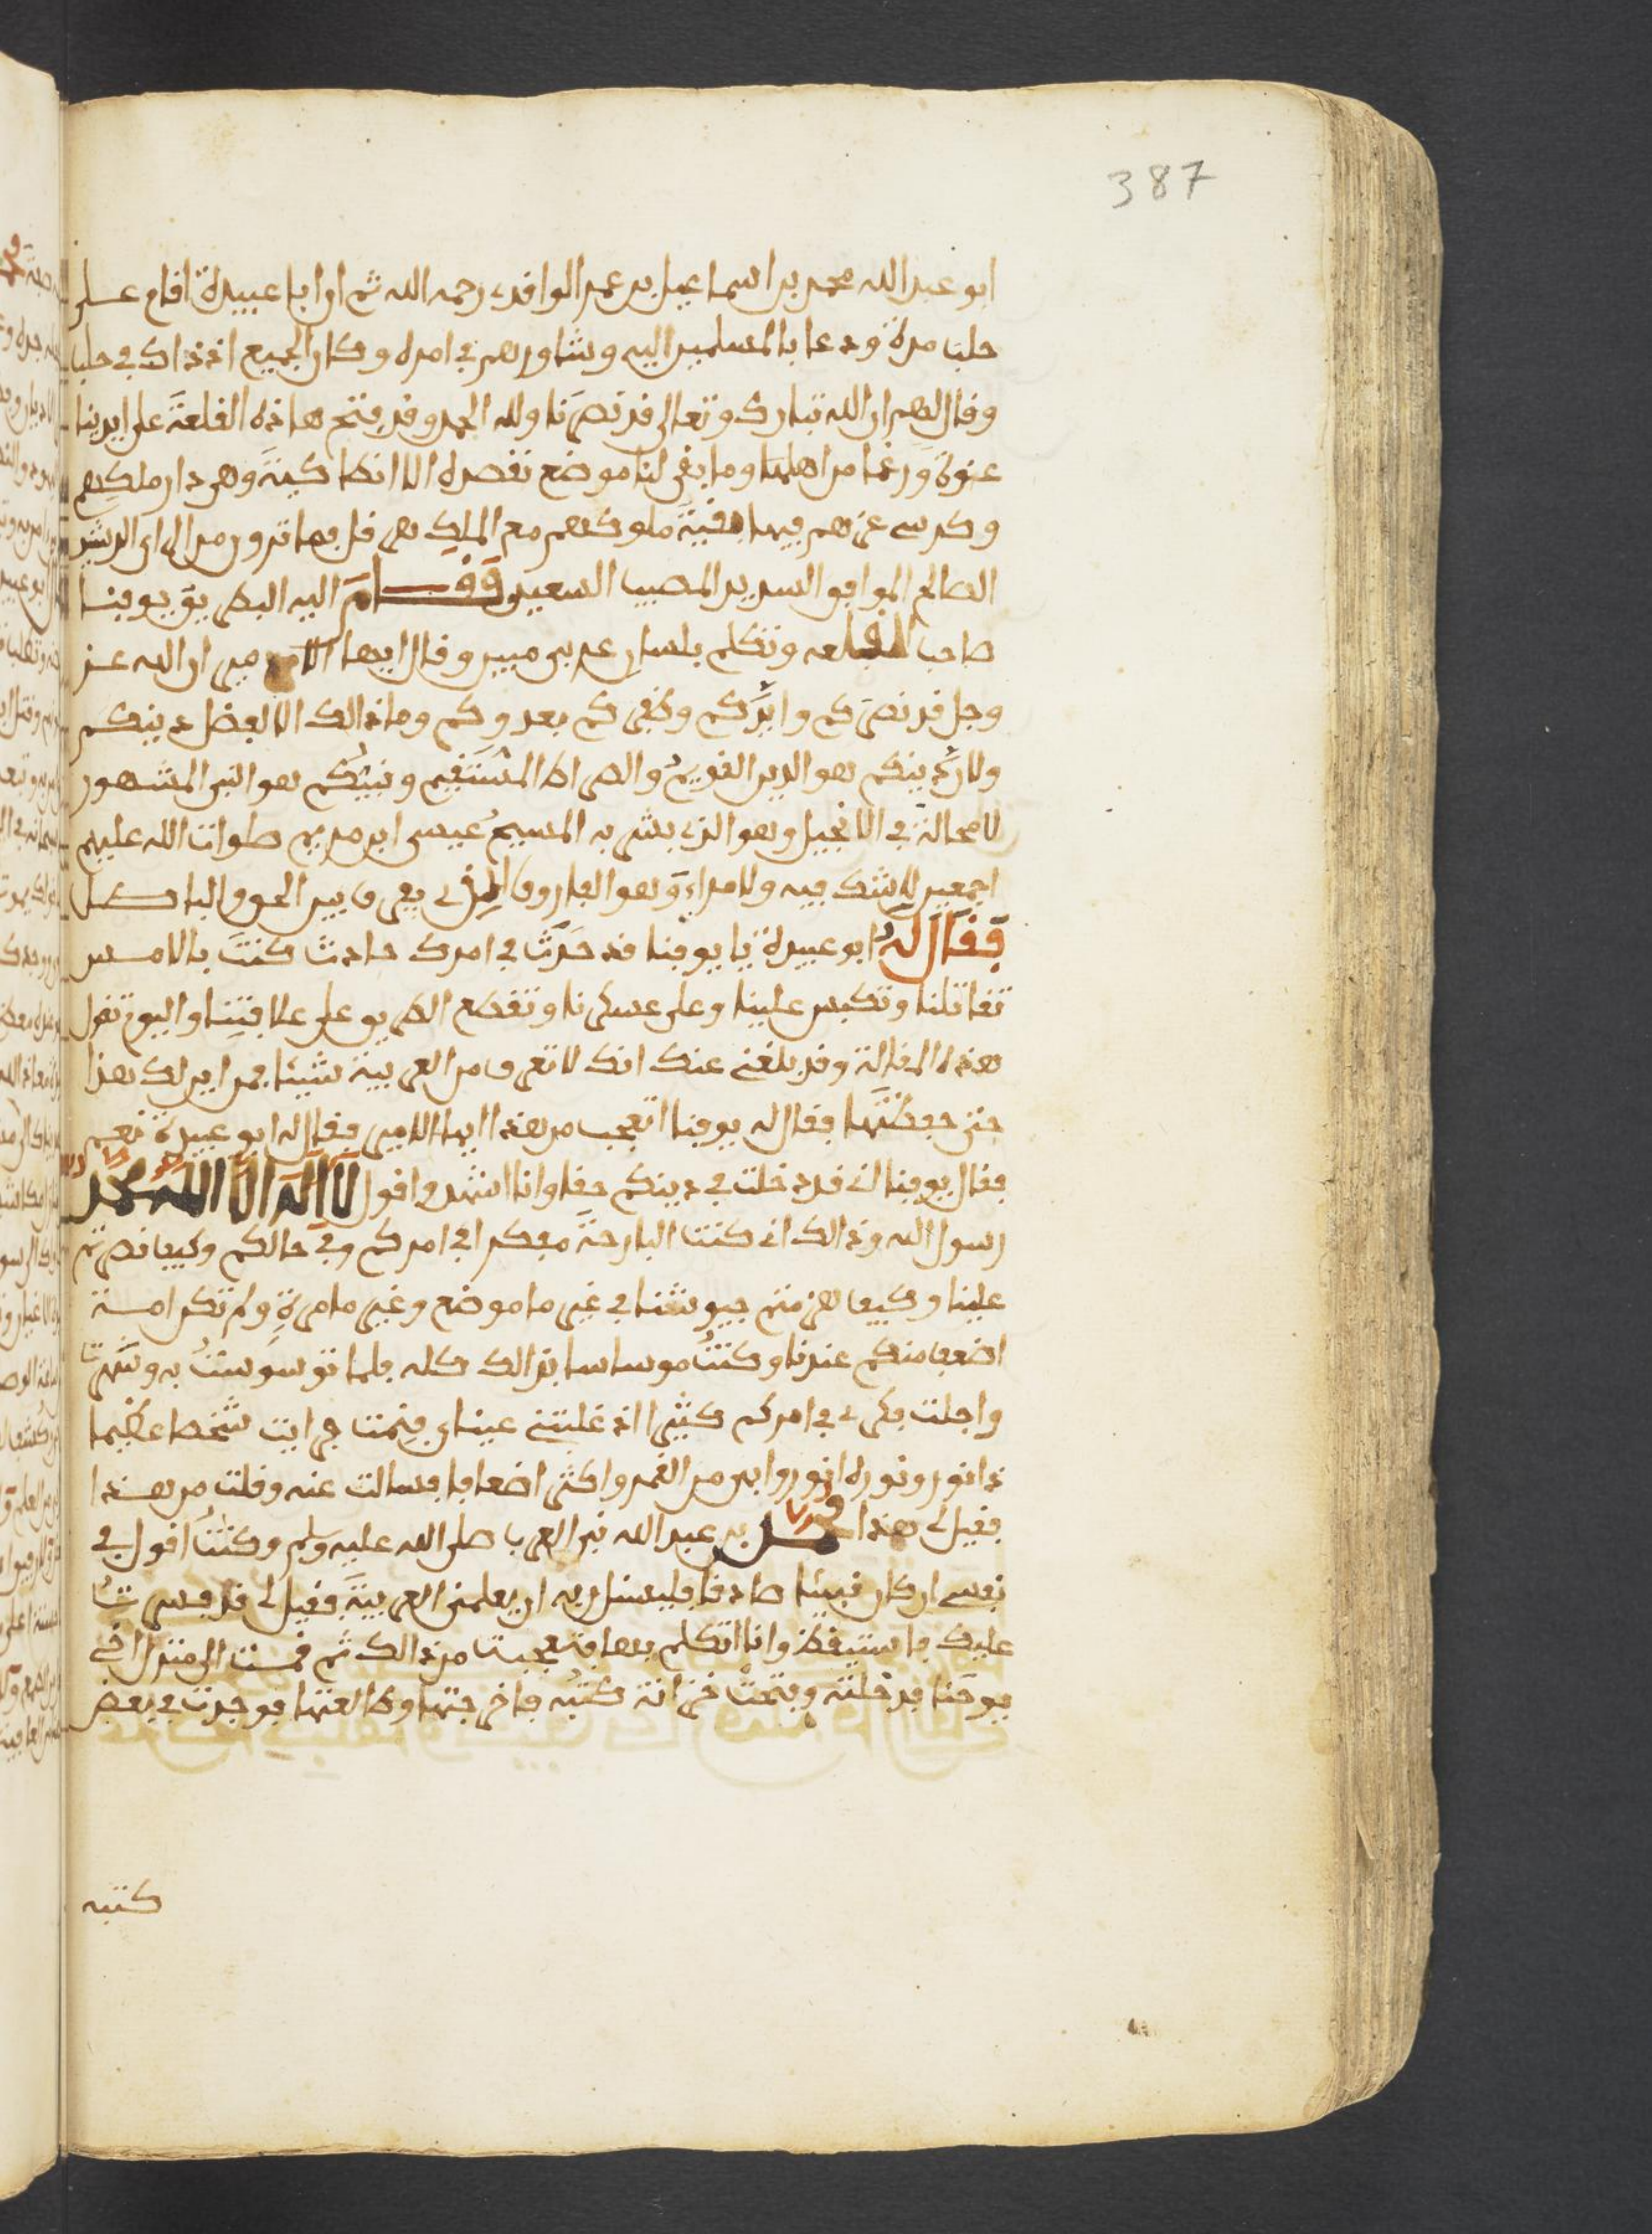 387
ابو عبد الله محمد بن اسماعيل بن عمر الواقدي رحمه الله ثم ان ابا عبيدة اقام علــى
حلب مدة ودعا بالمسلمين اليه وشاورهم في امره وكان الجميع اذ ذاك في حلب
وقال لهم ان الله تبارك وتعالى قد نصرنا ولله الحمد وقد فتح هاذه القلعة على ايدينا
عنوة ورغما من اهلها وما بقى لنا موضع نقصده الا انطاكية وهى دار ملكهم
وكرسى عزهم فيها بقية ملوكهم مع الملك هرقل فما ترون من الراى الرشيد
الصالح الموافق السديد المصيب السعيد فقــام اليه البطريق يوقنــا
صاحب القلعه وتكلم بلسان عربى مبين وقال ايها الامير ان الله عــز
وجل قد نصركم وايدكم وظفركم بعدوكم وما ذالك الا لفضل دينكم
ولان دينكم هو الدين القويم والصراط المستقيم ونبيكم هو النبى المشهور
لا محالة في الانجيل وهو الذى بشر به المسيح عيسى ابن مريم صلوات الله عليهم
اجمعين لا شك فيه ولا مراء وهو الفاروق الذى يفرق بين الحق والباطــل
فقال له ابو عبيدة يا يوقنا قد حدث في امرك حادث كنت بالامــس
تقاتلنا وتكبس علينا وعلى عسكرنا وتقطع الطريق على علافتنا واليوم تقول
هذه المقالة وقد بلغنى عنك انك لا تعرف من العربية شيئا فمن اين لك هذا
حتى حفظتها فقال له يوقنا اتعجب من هذا ايها الامير فقال له ابو عبيدة نعــم
فقال يوقنا انى قد دخلت في دينكم حقا وانا اشهد واقول لا اله الا الله محمد
رسول الله وذالك انى كنت البارحة مفكرا في امركم وفي حالكم وكيف نصرتم
علينا وكيف هزمتم جيوشنا في غير ما موضع وغير ما مرة ولم تكن امــة
اضعف منكم عندنا وكنت موساسا بذالك كله فلما توسوست به وسهرت
واجلت فكرى في امركم كثيرا اذ غلبتنى عيناى فنمت فرايت شخصا عظيما
ذا نور ونوره انور وابين من القمر واكثر اضعافا فسالت عنه وقلت من هــذا
فقيل لى هذا محمــد بن عبد الله نبى العرب صلى الله عليه وسلم وكنت اقول في
نفسى ان كان نبيئا صادقا فليسئل ربه ان يعلمنى العربية فقيل لى قد يسرت
عليك فاستيقظت وانا اتكلم بها فتعجبت من ذالك ثم قمت الى منزل اخى
يوحنا فدخلته وفتحت خزانة كتبه فاخرجتها وطالعتها فوجدت في بعض
كتبه